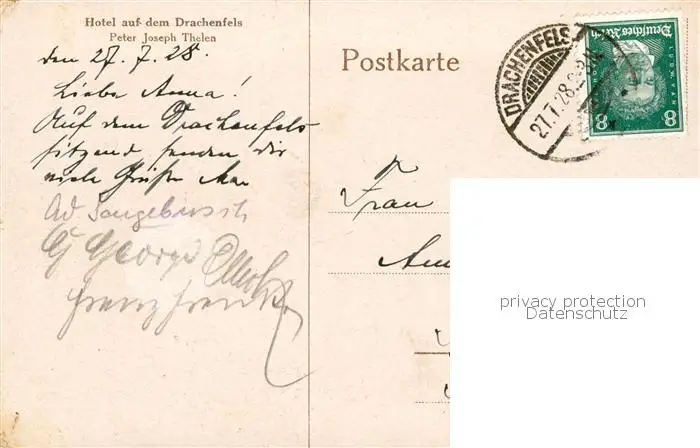 Hotel auf dem Drachenfels
Peter Joseph Thelen
den 27. 7. 28.
Liebe Anna!
Auf dem Drachenfels
sitzend senden dir
viele Grüße
Ad.
G George
Franz
Postkarte
DRACHENFELS
27.7.28.
Deutsches Reich
LUDW. VAN
8 8
Frau
privacy protection
Datenschutz